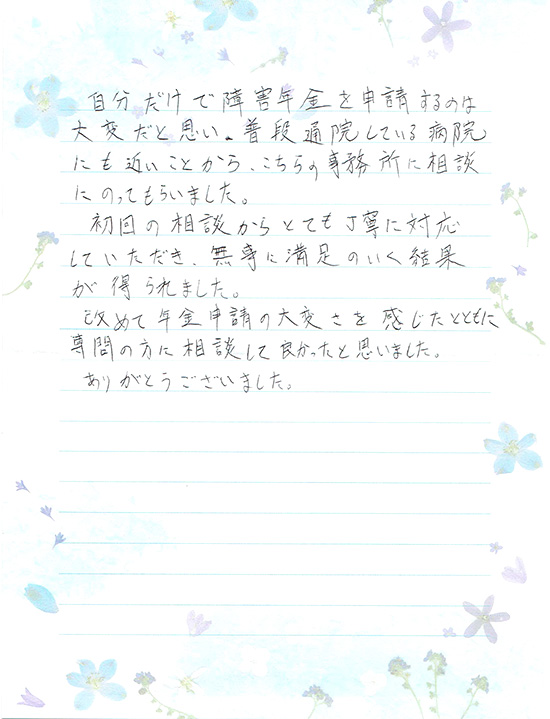 自分だけで障害年金を申請するのは
大変だと思い、普段通院している病院
にも近いことから、こちらの事務所に相談
にのってもらいました。
初回の相談からとても丁寧に対応
していただき、無事に満足のいく結果
が得られました。
改めて年金申請の大変さを感じたとともに
専門の方に相談して良かったと思いました。
ありがとうございました。